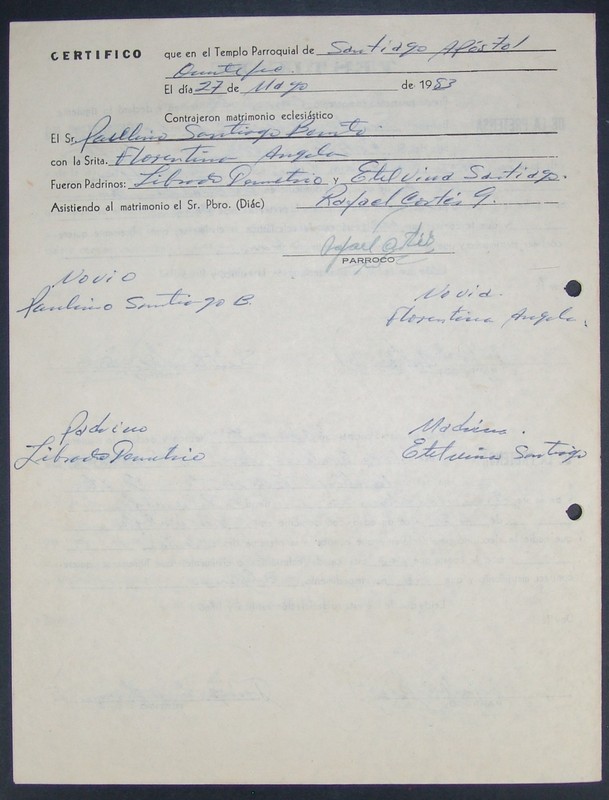 CERTIFICO que en el Templo Parroquial de Santiago Apóstol
El día 27 de Mayo de 1983
Contrajeron matrimonio eclesiástico
El Sr. Paulino Santiago Benito.
con la Srita. Florentina Angela
Fueron Padrinos: Librado Demetrio y Etelvina Santiago.
Asistiendo al matrimonio el Sr. Pbro. (Diác) Rafael Cortés G.
Rafael Cortés
PARROCO
Novio
Paulino Santiago B.
Novia.
Florentina Angela.
Padrino
Librado Demetrio
Madrina.
Etelvina Santiago